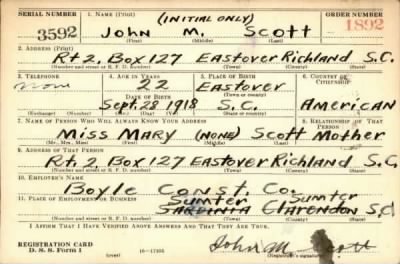 SERIAL NUMBER 1. NAME (Print) (INITIAL ONLY) ORDER NUMBER
3592 John M. Scott 1892
(First) (Middle) (Last)
2. ADDRESS (Print)
Rt 2, Box 127 Eastover Richland S.C.
(Number and street or R. F. D. number) (Town) (County) (State)
3. TELEPHONE 4. AGE IN YEARS 5. PLACE OF BIRTH 6. COUNTRY OF CITIZENSHIP
None 22 Eastover
DATE OF BIRTH (Town or county)
Sept. 28 1918 S.C. American
(Exchange) (No.) (Mo.) (Day) (Yr.) (State or country)
7. NAME OF PERSON WHO WILL ALWAYS KNOW YOUR ADDRESS 8. RELATIONSHIP OF THAT PERSON
Miss Mary (NONE) Scott Mother
(Mr., Mrs., Miss) (First) (Middle) (Last)
9. ADDRESS OF THAT PERSON
Rt. 2, Box 127 Eastover Richland S.C.
(Number and street or R. F. D. number) (Town) (County) (State)
10. EMPLOYER'S NAME
Boyle Const. Co.
11. PLACE OF EMPLOYMENT OR BUSINESS Sumter Sumter
SARDINIA Clarendon S.C
(Number and street or R. F. D. number) (Town) (County) (State)
I AFFIRM THAT I HAVE VERIFIED ABOVE ANSWERS AND THAT THEY ARE TRUE.
REGISTRATION CARD
D. S. S. Form 1 16-17105 John M. Scott
(Registrant's signature)